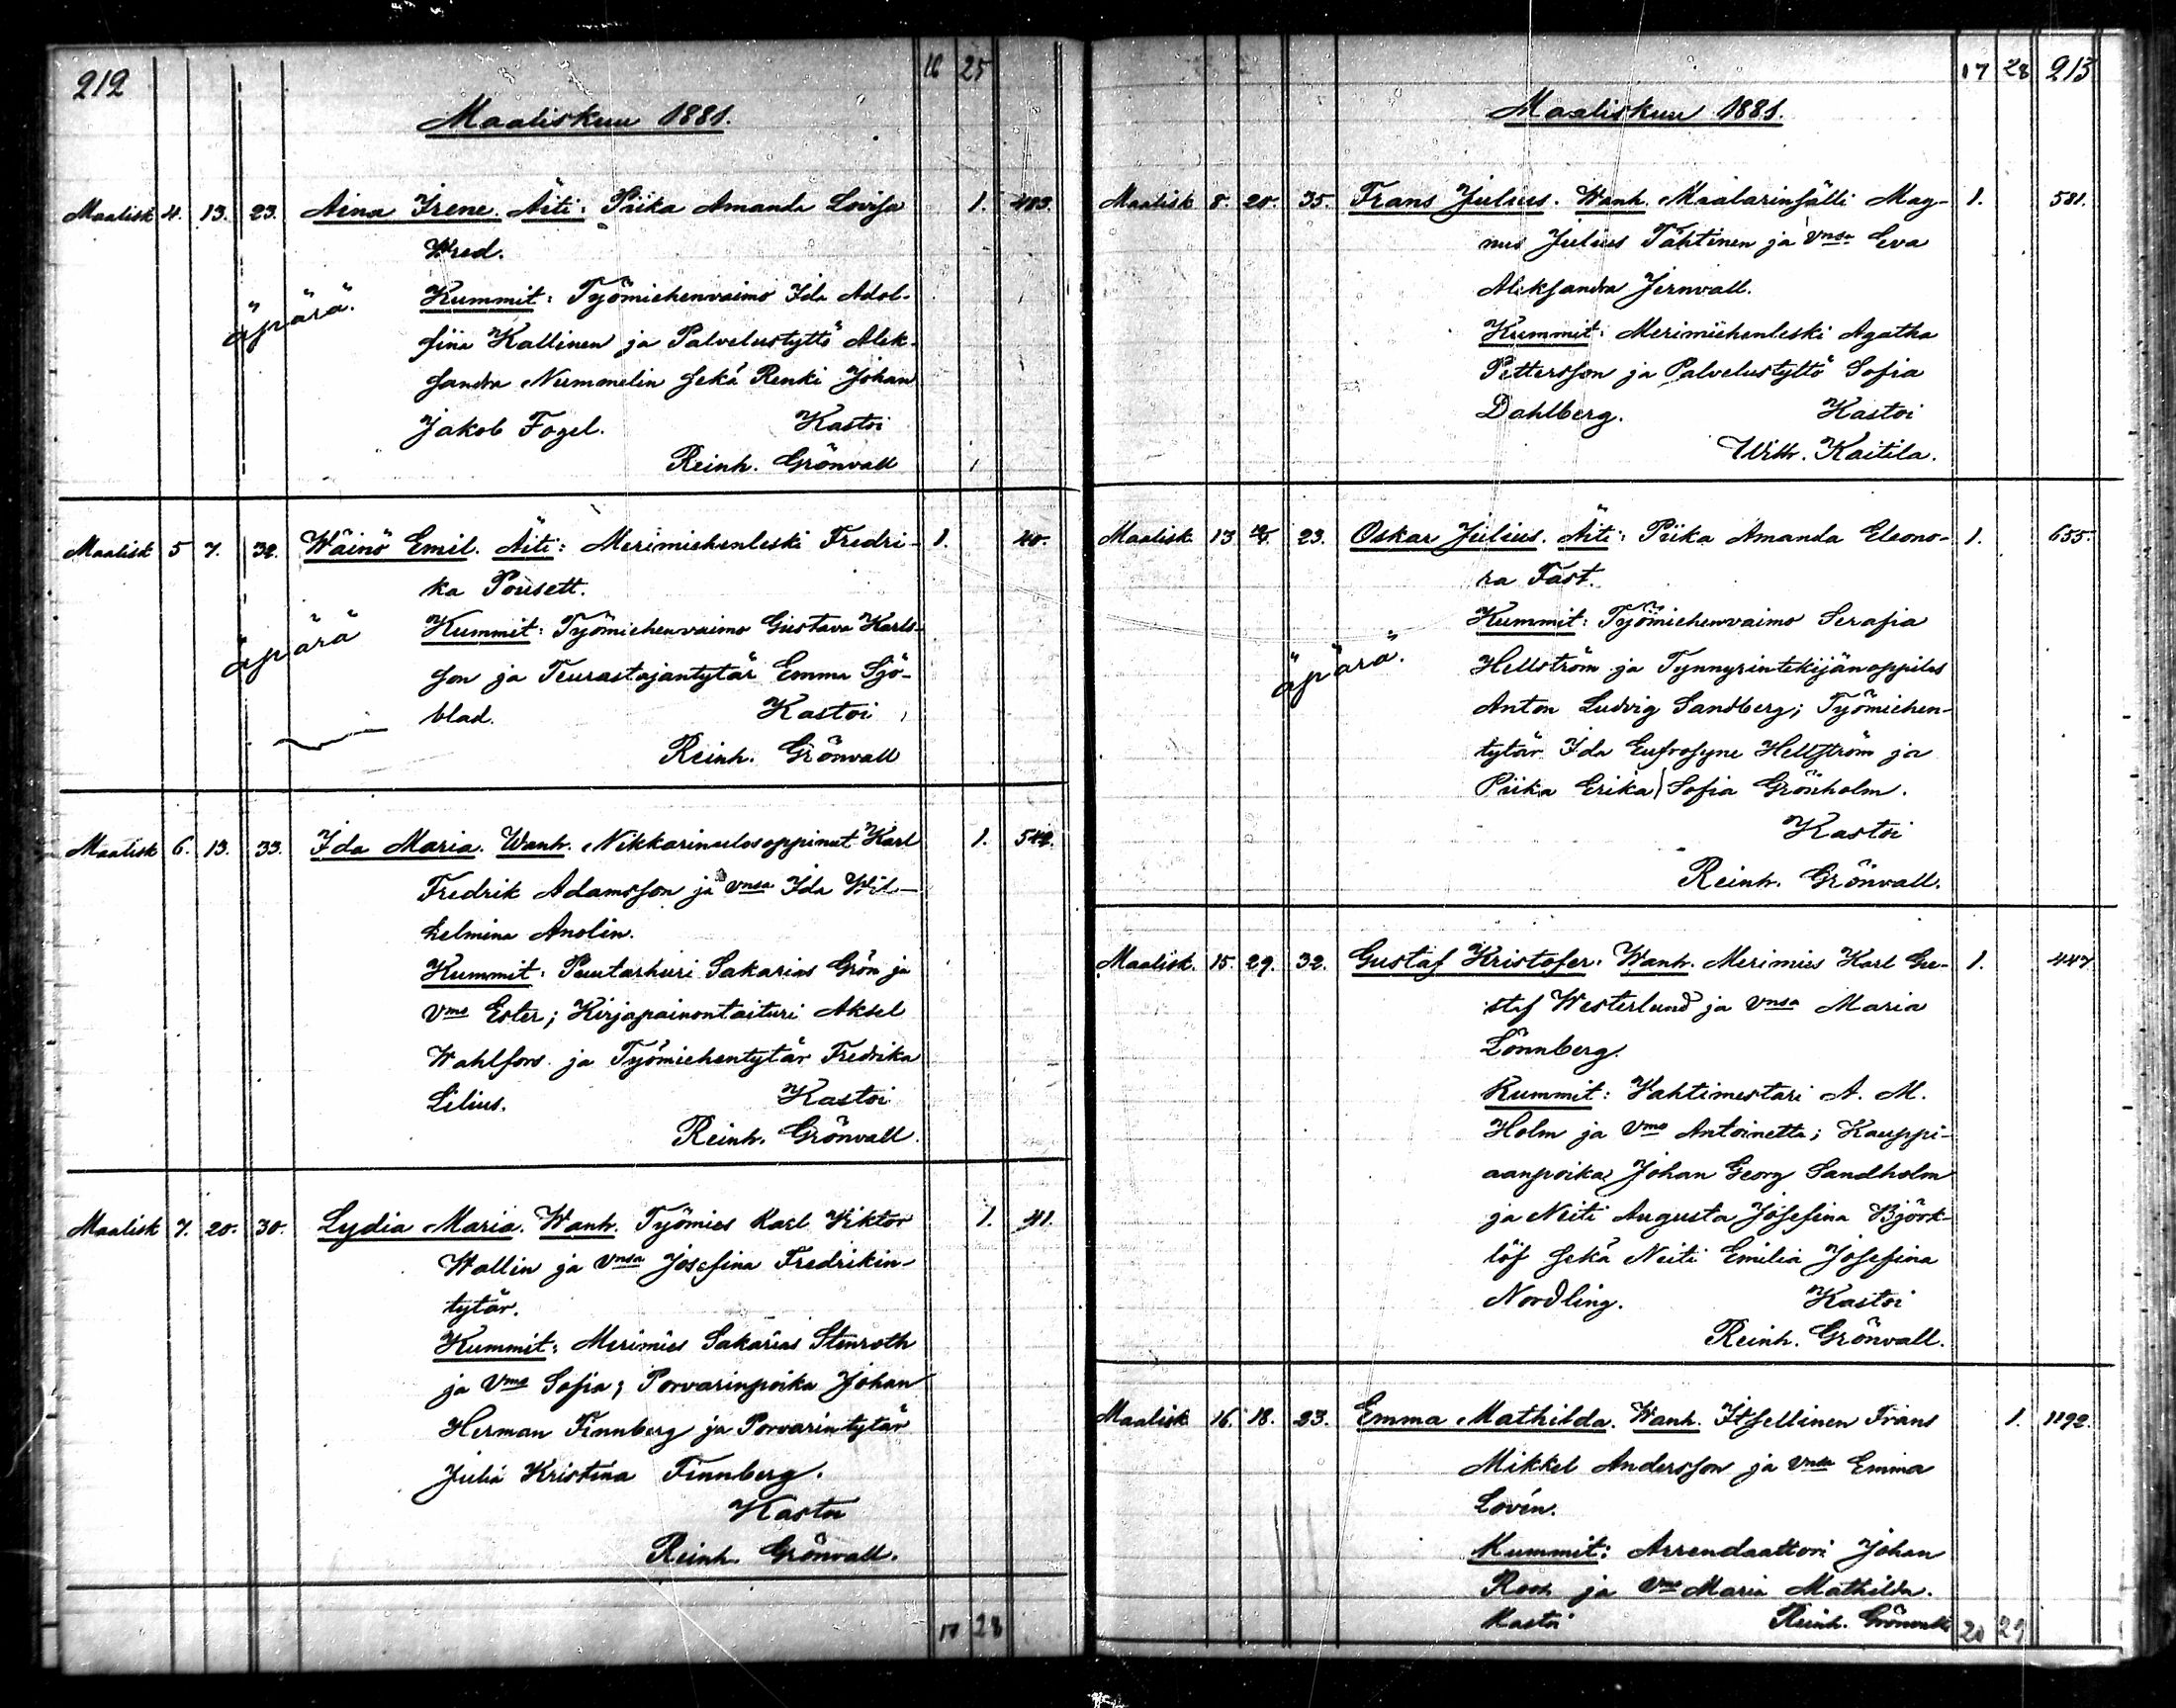 212
16 25
Maaliskuu 1881.
Maalisk 4. 13. 23. Aina Irene. Äiti: Piika Amanda Lovisa 1. 483.
Wred.
äpärä. Kummit: Työmiehenvaimo Ida Adol-
fiina Kallinen ja Palvelustyttö Alek-
sandra Nummelin sekä Renki Johan
Jakob Fogel. Kastoi
Reinh. Grönvall
Maalisk 5 7. 32. Wäinö Emil. Äiti: Merimiehenleski Fredri- 1. 40.
ka Pousett.
äpärä Kummit: Työmiehenvaimo Gustava Karls-
son ja Teurastajantytär Emma Sjö-
blad. Kastoi
Reinh. Grönvall
Maalisk 6. 13. 33. Ida Maria. Wanh. Nikkarinulosoppinut Karl 1. 542.
Fredrik Adamsson ja Vnsa Ida Wil-
helmina Anolin.
Kummit: Puutarhuri Sakarias Grön ja
Vmo Ester; Kirjapainontaituri Aksel
Wahlfors ja Työmiehentytär Fredrika
Lilius. Kastoi
Reinh. Grönvall.
Maalisk 7. 20. 30. Lydia Maria. Wanh. Työmies Karl Viktor 1. 41.
Wallin ja Vnsa Josefina Fredrikin-
tytär.
Kummit: Merimies Sakarias Stenroth
ja Vmo Sofia; Porvarinpoika Johan
Herman Finnberg ja Porvarintytär
Julia Kristina Finnberg.
Kastoi
Reinh. Grönvall.
17 28
17 28 213
Maaliskuu 1881.
Maalisk 8. 20. 35. Frans Julius. Wanh. Maalarinsälli Mag- 1. 581.
nus Julius Tähtinen ja Vnsa Eva
Aleksandra Jernvall.
Kummit: Merimiehenleski Agatha
Pettersson ja Palvelustyttö Sofia
Dahlberg. Kastoi
Wilh. Kaitila.
Maalisk 13 23. Oskar Julius. Äiti: Piika Amanda Eleono- 1. 655.
ra Fast.
Kummit: Työmiehenvaimo Serafia
äpärä. Hellström ja Tynnyrintekijänoppilas
Anton Ludvig Sandberg; Työmiehen-
tytär Ida Eufrosyne Hellström ja
Piika Erika Sofia Grönholm.
Kastoi
Reinh. Grönvall.
Maalisk. 15. 29. 32. Gustaf Kristofer. Wanh. Merimies Karl Gu- 1. 447.
staf Westerlund ja Vnsa Maria
Lönnberg.
Kummit: Vahtimestari A. M.
Holm ja Vmo Antoinetta; Kauppi-
aanpoika Johan Georg Sandholm
ja Neiti Augusta Josefina Björk-
löf sekä Neiti Emilia Josefina
Nordling. Kastoi
Reinh. Grönvall.
Maalisk 16. 18. 23. Emma Mathilda. Wanh. Itsellinen Frans 1. 1192.
Mikkel Andersson ja Vnsa Emma
Lovén.
Kummit: Arrendaattori Johan
Roos ja Vmo Maria Mathilda.
Kastoi Reinh. Grönvall
20 29